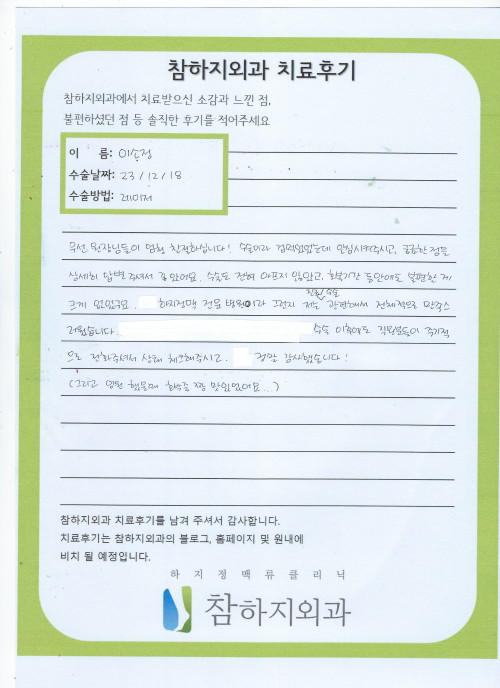 참하지외과 치료후기
참하지외과에서 치료받으신 소감과 느낀 점,
불편하셨던 점 등 솔직한 후기를 적어주세요
이 름: 이송정
수술날짜: 23/12/18
수술방법: 레이저
우선 원장님들이 엄청 친절하십니다! 수술이라 겁먹었었는데 안심시켜주시고, 궁금한 점들
상세히 답변 주셔서 좋았어요. 수술도 전혀 아프지 않았고, 회복기간 동안에도 불편한 게
크게 없었구요. 하지정맥 전문 병원이라 그런지 저는 진료, 수술 관련해서 전체적으로 만족스
러웠습니다. 수술 이후에도 직원분들이 주기적
으로 전화주셔서 상태 체크해주시고. 정말 감사했습니다!
(그리고 입원 했을때 죽 짱 맛있었어요...)
참하지외과 치료후기를 남겨 주셔서 감사합니다.
치료후기는 참하지외과의 블로그, 홈페이지 및 원내에
비치 될 예정입니다.
하지정맥류클리닉
참하지외과